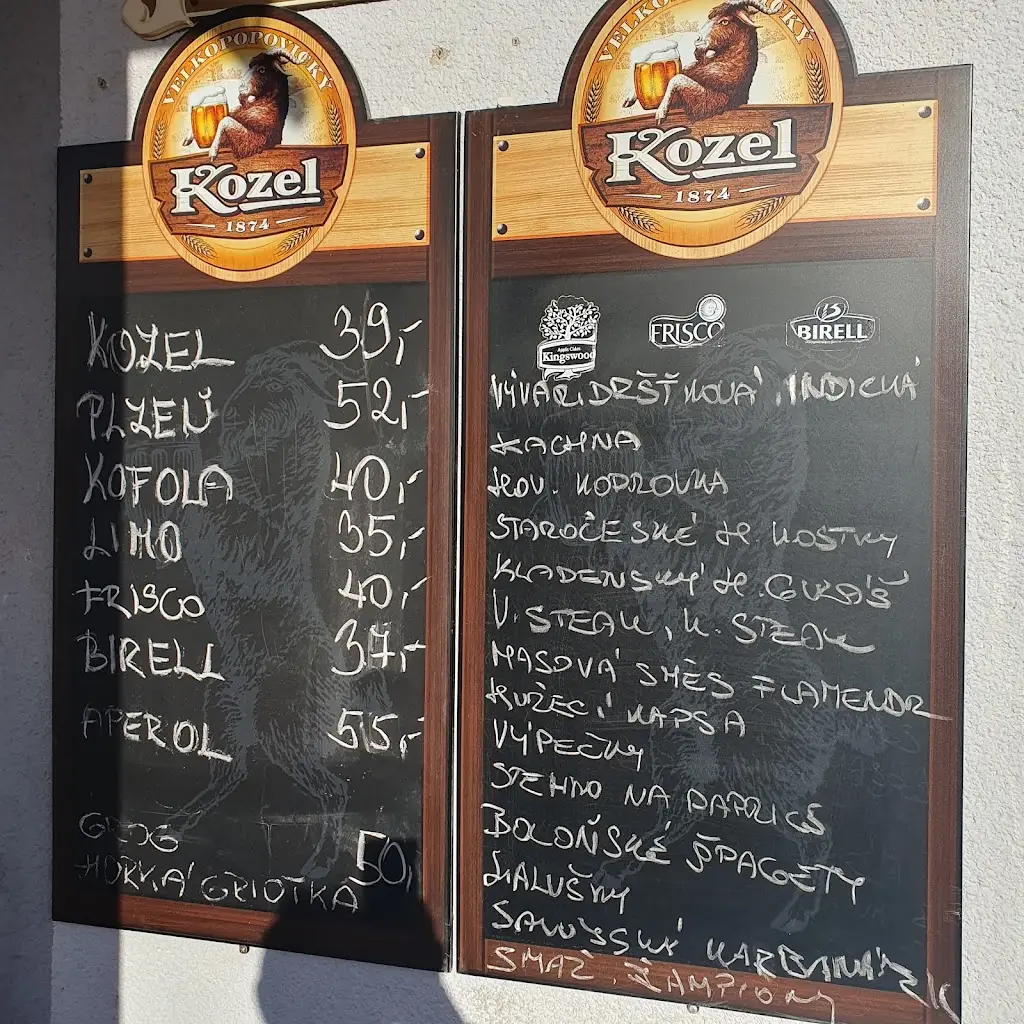 VELKOPOPOVICKÝ
Kozel
1874
KOZEL 39,-
PLZEŇ 52,-
KOFOLA 40,-
LIMO 35,-
FRISCO 40,-
BIRELL 37,-
APEROL 55,-
GROG
HORKÁ GRIOTKA 50,-
VELKOPOPOVICKÝ
Kozel
1874
Apple Cider
Kingswood
FRISCO
BIRELL
VÝVAR, DRŠŤKOVÁ, INDICKÁ
KACHNA
HOV. KOPROVKA
STAROČESKÉ H. KOSTKY
KLADENSKÝ H. GULÁŠ
V. STEAK, K. STEAK
MASOVÁ SMĚS FLAMENDR
KUŘECÍ KAPSA
VÝPEČKY
STEHNO NA PAPRICE
BOLOŇSKÉ ŠPAGETY
HALUŠKY
SMAŽ. ŽAMPIONY